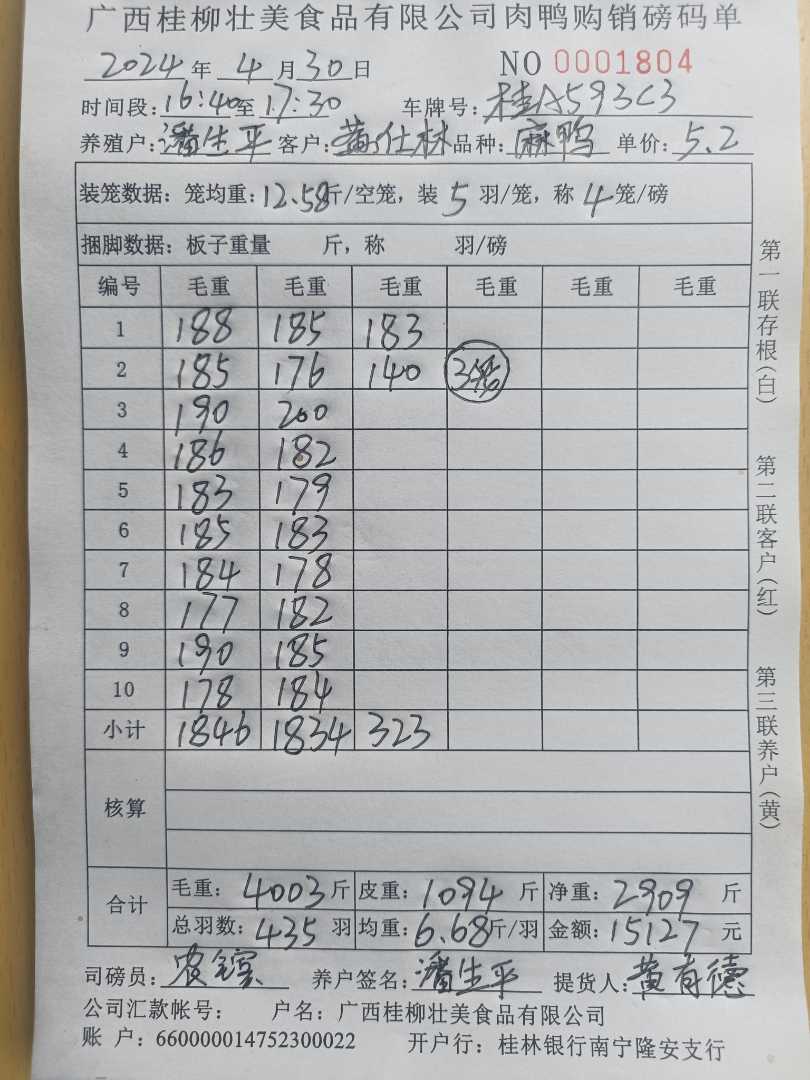 广西桂柳壮美食品有限公司肉鸭购销磅码单
2024 年 4 月 30 日 NO 0001804
时间段: 16:40 至 17:30 车牌号: 桂A593C3
养殖户: 潘生平 客户: 黄仕林 品种: 麻鸭 单价: 5.2
装笼数据: 笼均重: 12.58 斤/空笼, 装 5 羽/笼, 称 4 笼/磅
捆脚数据: 板子重量 斤, 称 羽/磅
编号 毛重 毛重 毛重 毛重 毛重 毛重
1 188 185 183
2 185 176 140 3笼
3 190 200
4 186 182
5 183 179
6 185 183
7 184 178
8 177 182
9 190 185
10 178 184
小计 1846 1834 323
核算
合计 毛重: 4003 斤 皮重: 1094 斤 净重: 2909 斤
总羽数: 435 羽 均重: 6.68 斤/羽 金额: 15127 元
司磅员: 农 养户签名: 潘生平 提货人: 黄有德
公司汇款帐号: 户名: 广西桂柳壮美食品有限公司
账 户: 660000014752300022 开户行: 桂林银行南宁隆安支行
第一联存根(白)
第二联客户(红)
第三联养户(黄)